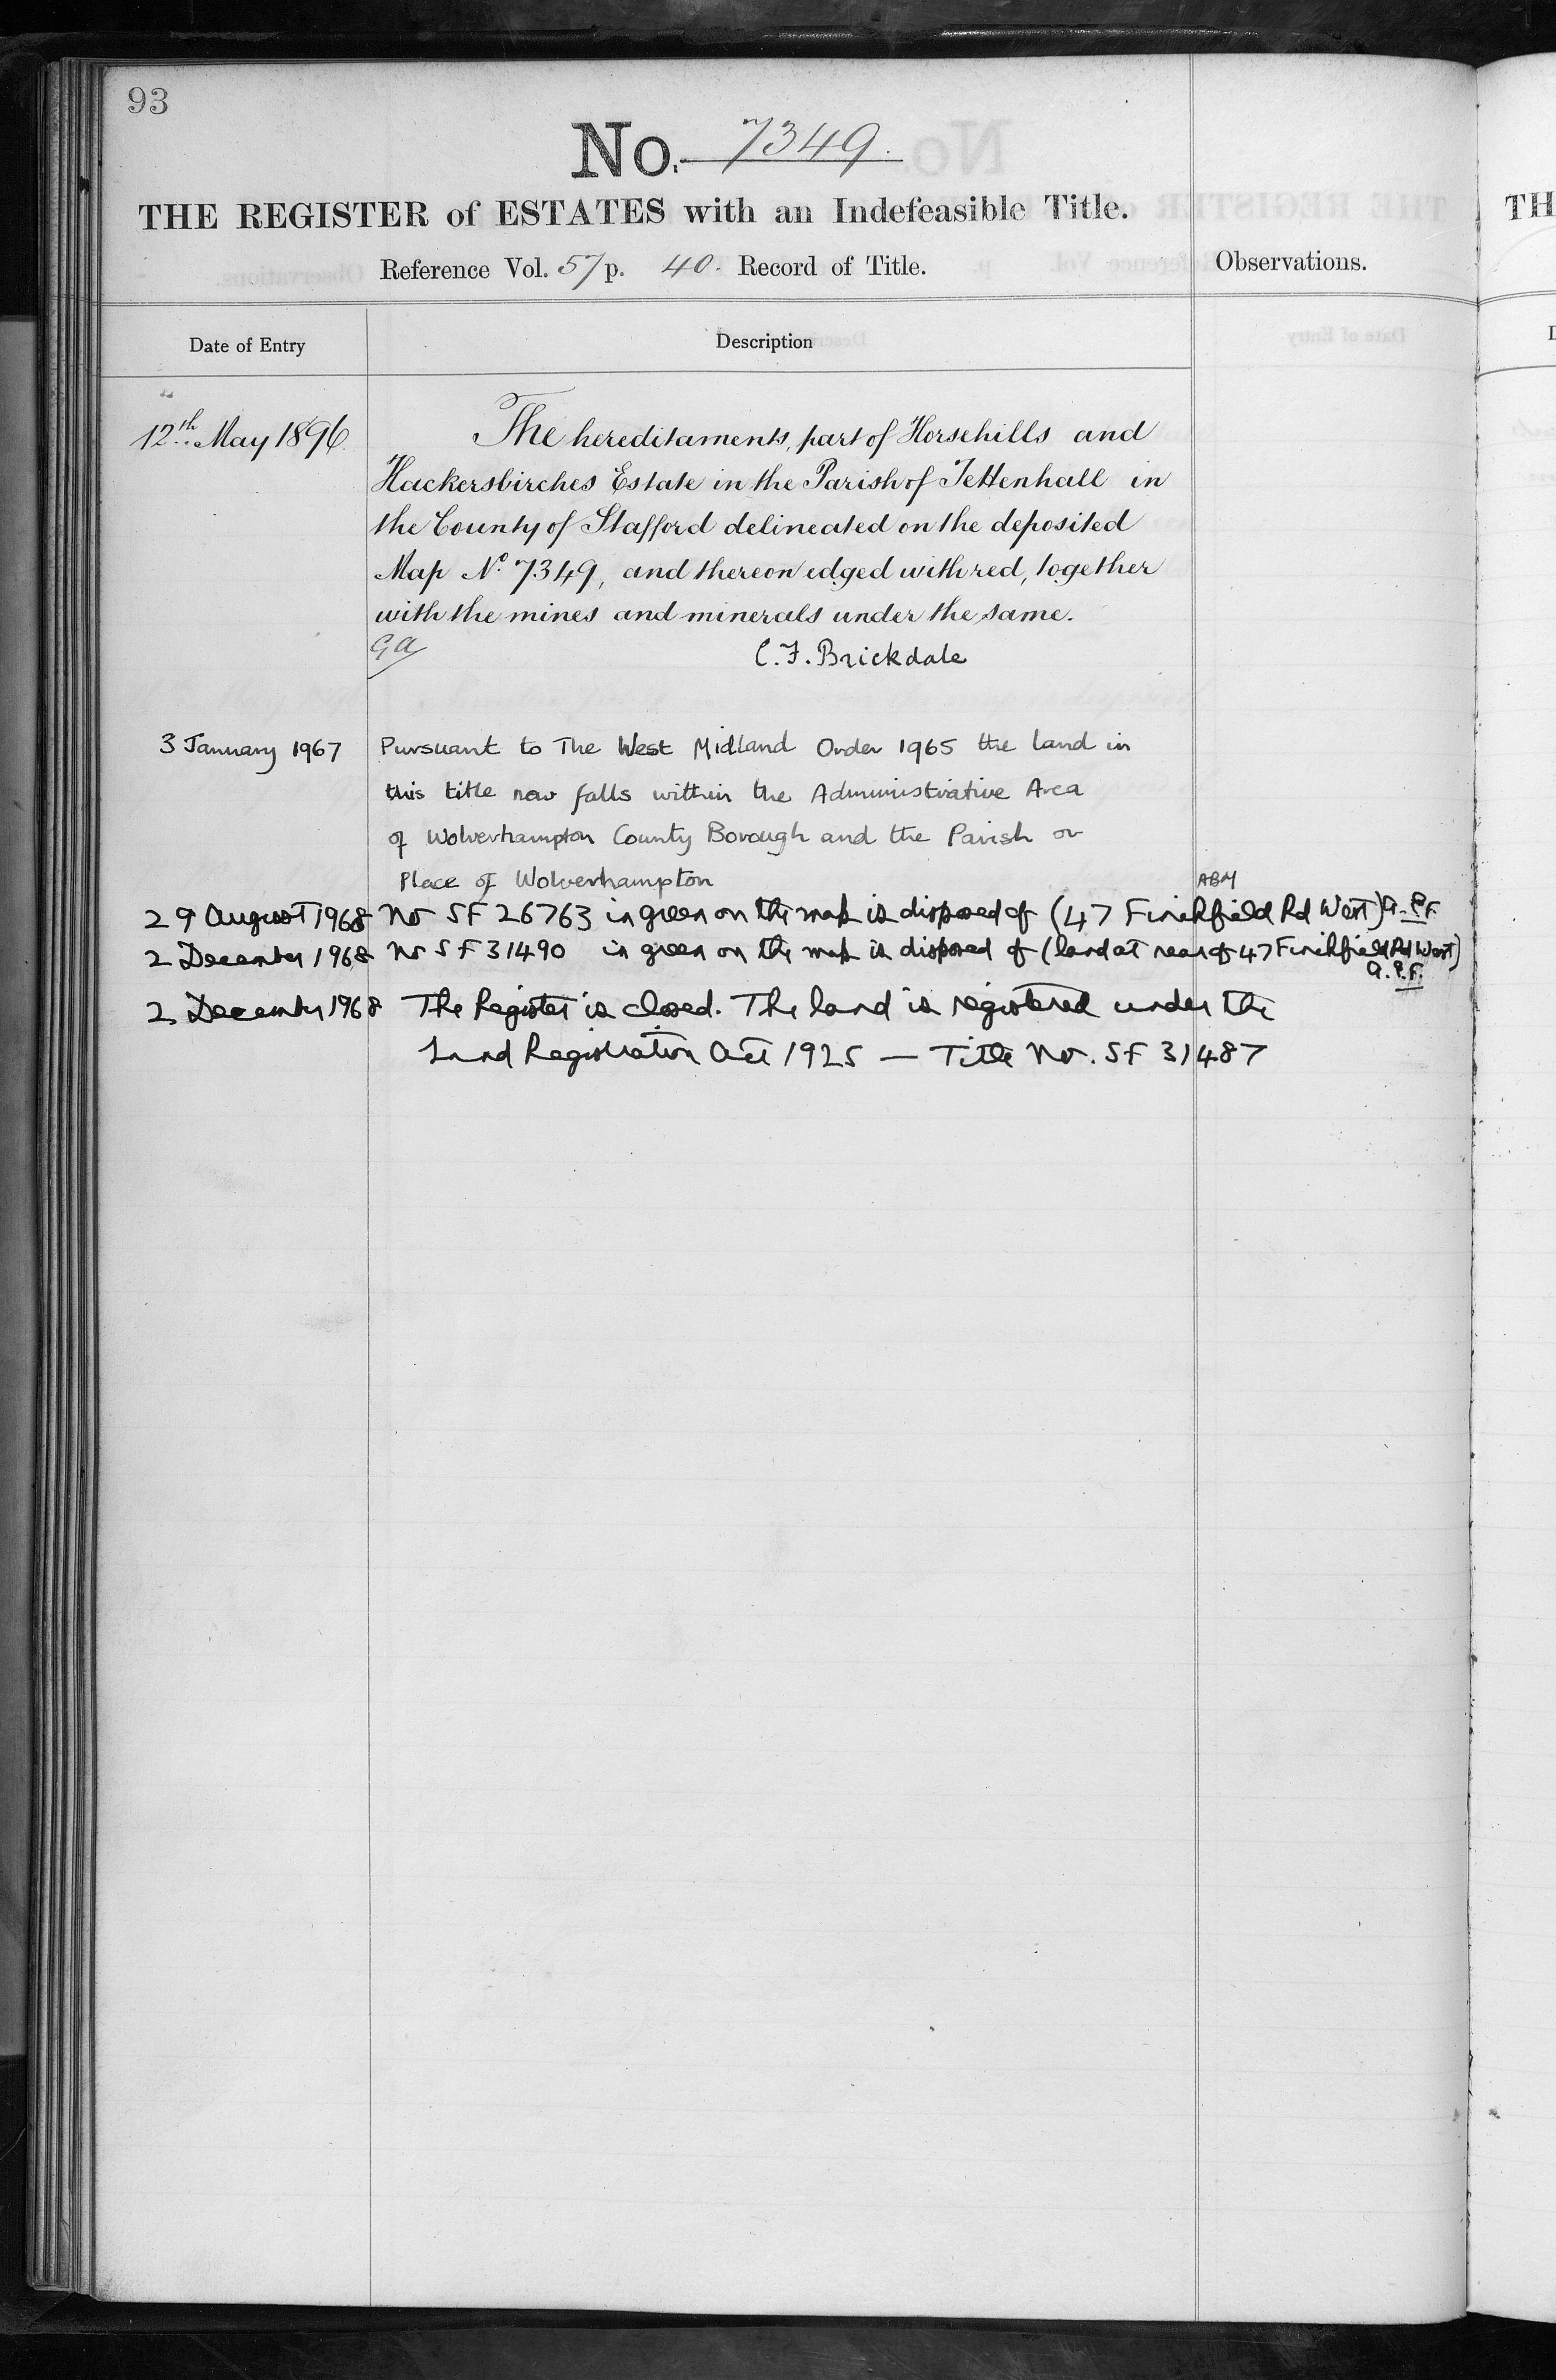 93
No. 7349.
THE REGISTER of ESTATES with an Indefeasible Title.
Reference Vol. 57 p. 40. Record of Title.
Observations.
Date of Entry
Description
12th May 1896.
The hereditaments, part of Horsehills and
Hackersbirches Estate in the Parish of Tettenhall in
the County of Stafford delineated on the deposited
Map No. 7349, and thereon edged with red, together
with the mines and minerals under the same.
GA
C.F. Brickdale
3 January 1967 Pursuant to The West Midland Order 1965 the land in
this title now falls within the Administrative Area
of Wolverhampton County Borough and the Parish or
Place of Wolverhampton
ABM
29 August 1968 No SF 26763 in green on the map is disposed of (47 Finchfield Rd West) A.P.F.
2 December 1968 No SF 31490 in green on the map is disposed of (land at rear of 47 Finchfield Rd West)
A.P.F.
2 December 1968 The Register is closed. The land is registered under the
Land Registration Act 1925 — Title No. SF 31487
TH